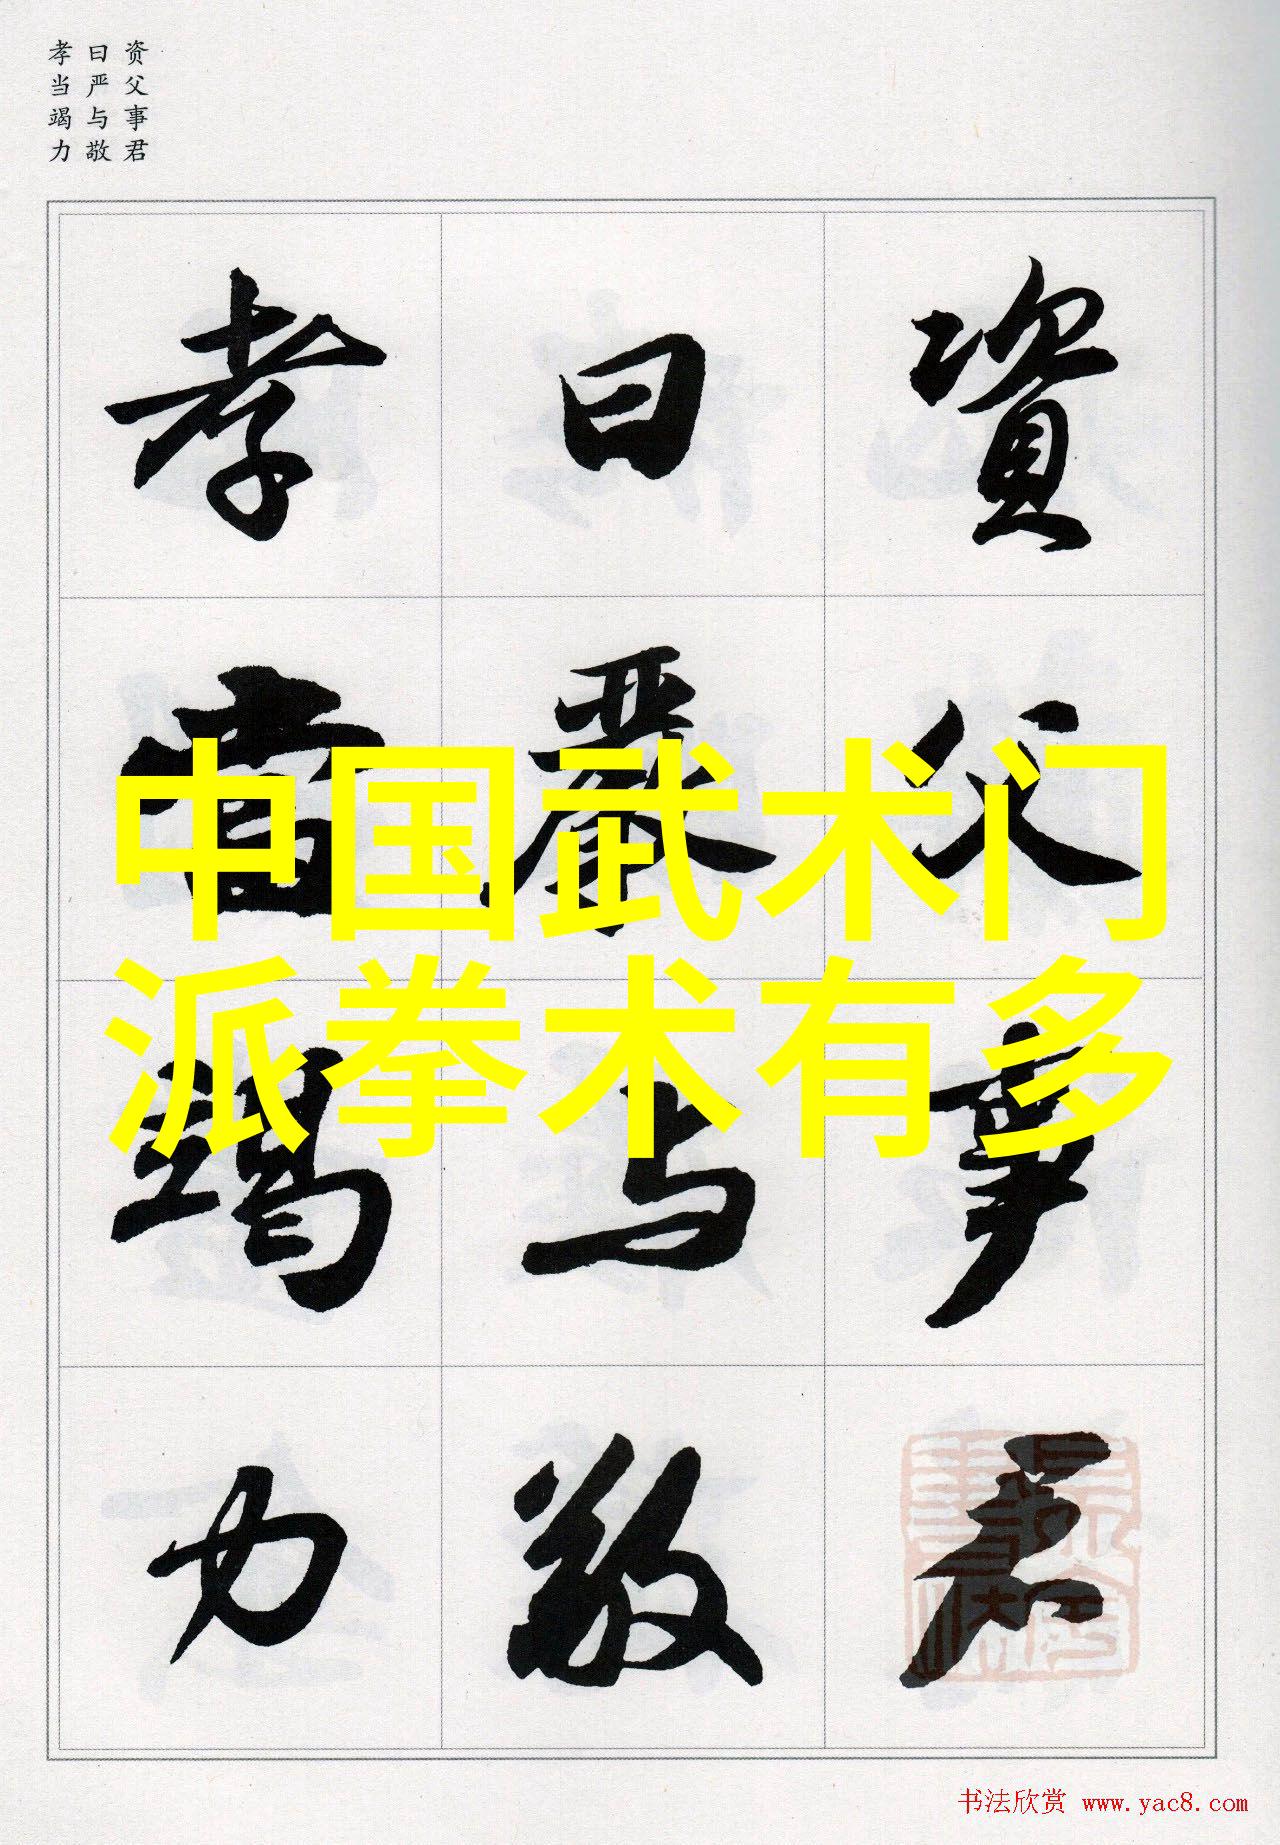 资父事君
曰严与敬
孝当竭力
資父事君
曰嚴与敬
孝當竭力
中国武术门
派拳术有多
书法欣赏 www.yac8.com